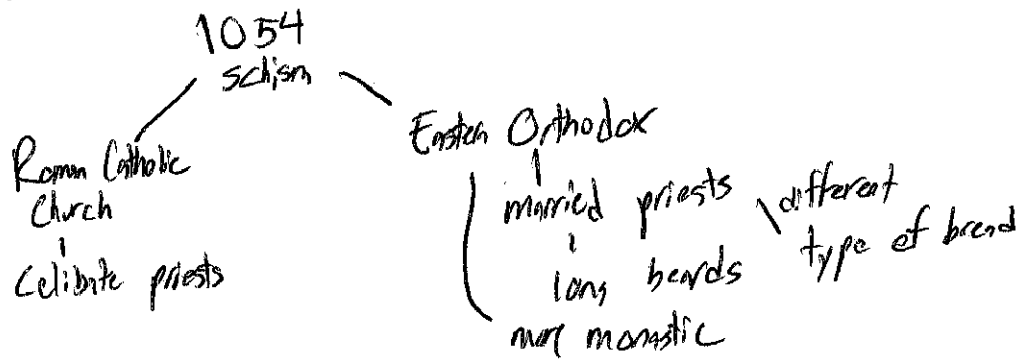 1054
schism
Roman Catholic
Church
Celibate priests
Eastern Orthodox
married priests
long beards
more monastic
different
type of bread